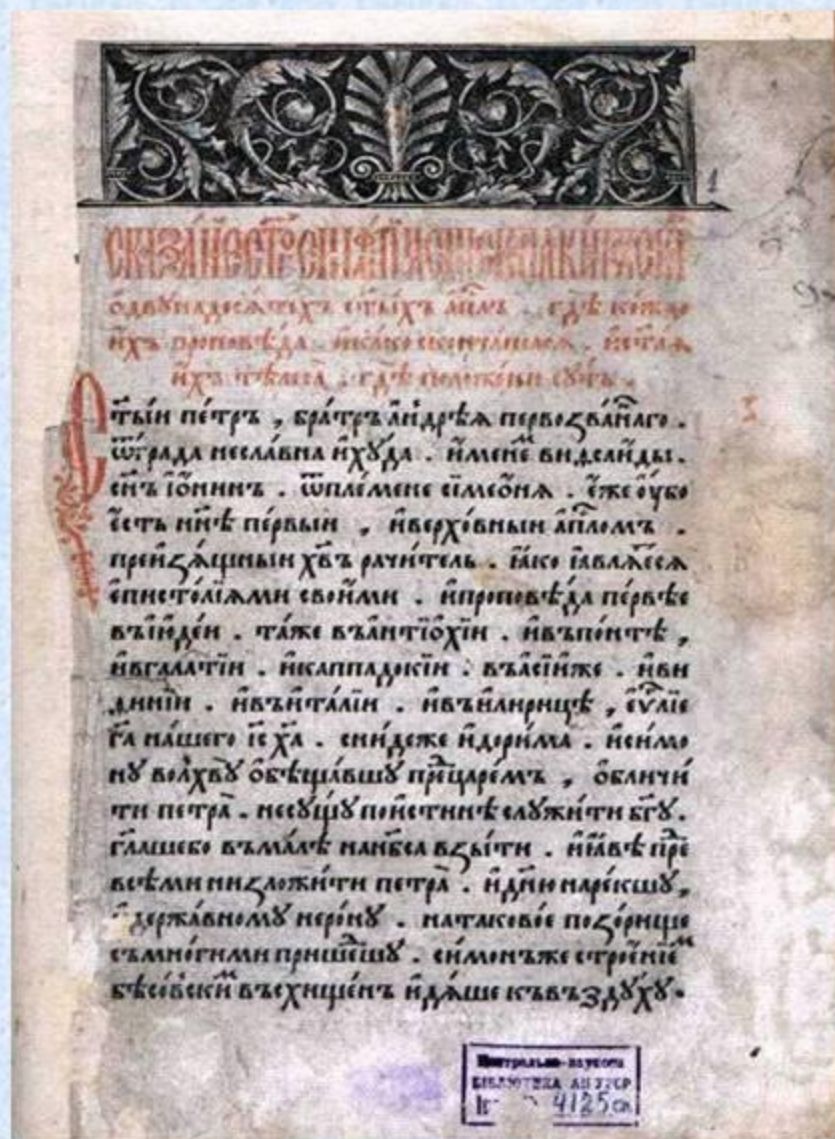 1
СКАЗА́НІЕ
ѻ҆двꙋнадесѧтихъ ст҃ы́хъ а҆пл҃ъ . гдѣ̀ ко́ждо
и҆́хъ проповѣ́да . и҆ка́ко сконча́шасѧ . и҆ст҃а́ѧ
и҆́хъ тѣлеса̀ . гдѣ̀ положе́ни сꙋ́ть .
Ст҃ы́и пе́тръ , бра́тръ а҆ндрѣ́ѧ первозва́ннаго .
ѿгра́да несла́вна и҆хꙋ́да . и҆́менеⷨ видсаи́ды .
сн҃ъ і҆ѡ́нинъ . ѿпле́мене симео́нѧ . є҆́же ᲂу҆́бо
є҆́сть нн҃ѣ пе́рвыи , и҆верхо́вныи а҆пⷭ҇ломъ .
преизѧ́щныи хв҃ъ рачи́тель . ꙗ҆́ко ꙗ҆влѧ́еⷮсѧ
є҆писто́лїѧми свои́ми . и҆проповѣ́да пе́рвѣе
въі҆юде́и . та́же въа҆нтїо́хїи . и҆въпо́нтѣ ,
и҆вгала́тїи . и҆каппадокі́и . въа҆сі́иже . и҆ви
ди́нїи . и҆въи҆та́лїи . и҆въи҆лири́цѣ , є҆ѵⷢ҇лїе
гⷭ҇а на́шего і҆с х҃а . сни́деже и҆дори́ма . и҆си́мо
нꙋ волхвꙋ̀ ѻ҆бѣща́вшꙋ преⷣцаре́мъ , ѻ҆бличи́
ти петра̀ . несꙋ́щꙋ пои́стиннѣ слꙋжи́ти бг҃ꙋ .
гл҃ашебо въма́лѣ нанб҃са взы́ти . и҆ꙗ҆́вѣ преⷣ
всѣ́ми низложи́ти петра̀ . и҆дн҃ю наре́кшꙋ ,
и҆держа́вномꙋ неро́нꙋ . натаково́е позо́рище
съмно́гими прише́дшꙋ . си́монъже строе́нїеⷨ
бѣсо́вскиⷨ въсхище́нъ и҆дѧ́ше къвъздꙋ́хꙋ .
БІБЛІОТЕКА АН УРСР
4125 сп